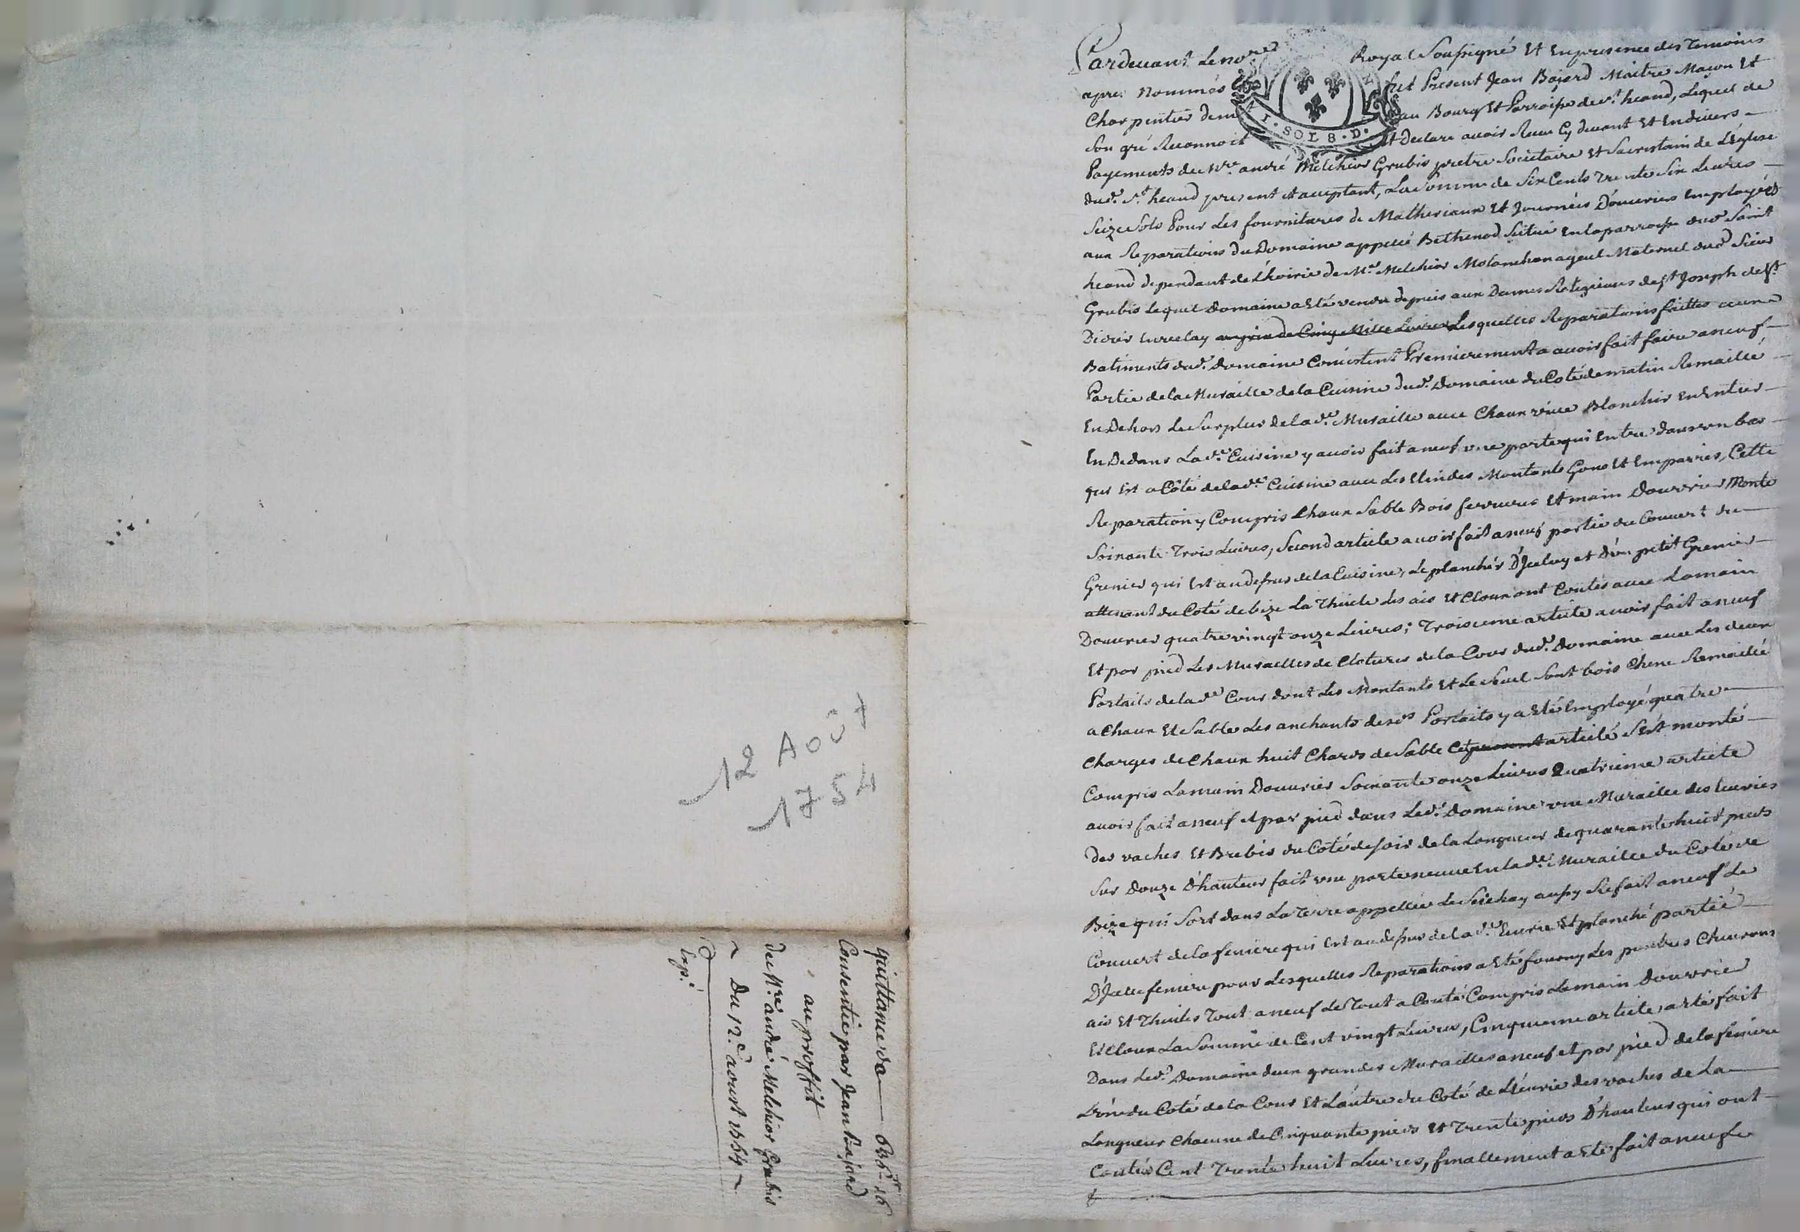 12 Août
1754
quittance de 636# 16s
Consentie par Jean Bajard
au proffit
de Mre andré Melchior Grubis
Du 12e aoust 1754
Exp.
Pardevant Le no.re Royal Soussigné Et En presence des Temoins
apres Nommés fut Present Jean Bajard Maitre Maçon Et
Charpentier dem.t au Bourg Et Parroisse de St heand, Lequel de
Son gré Reconnoit Et Declare avoir Receu Cy devant Et En divers
Payements de Mre andré Melchior Grubis pretre Societaire Et Sacristain de L'Eglise
dud. St heand present Et acceptant, La Somme de Six Cents Trente Six Livres
Seize Sols Pour Les fournitures de Matheriaux Et Journées D'ouvriers Employés
aux Reparations du Domaine appellé Bethenod Situé En la parroisse dud Saint
heand dependant de L'hoirie de Mre Melchior Molanchon ayeul Maternel dud Sieur
Grubis Lequel Domaine a Eté vendu depuis aux Dames Religieuses de St Joseph de St
Didier En velay au prix de Cinq Mille Livres Lesquelles Reparations faittes aux
Batiments dud. Domaine Consistent Premierement a avoir fait faire a neuf
Partie de la Muraille de la Cuisine dud. Domaine du Coté de matin Remaillé
En Dehors Le Surplus de lad.e Muraille avec Chaux vive Blanchir En Entier
En Dedans Lad.e Cuisine y avoir fait a neuf une porte qui Entre dans un bas
qui Est a Côté de lad.e Cuisine avec Les Montants Gons Et Emparres, Cette
Reparation y Compris Chaux Sable Bois ferrure Et main D'ouvrier Monte
Soixante Trois Livres, Second article avoir fait a neuf partie du Couvert du
Grenier qui Est au dessus de la Cuisine, Le plancher D'Iceluy et d'un petit Grenier
attenant du Coté de bize La Thuile Les ais Et Cloux ont Coutés avec La main
D'ouvrier quatre vingt onze Livres; Troisieme article avoir fait a neuf
Et par pied Les Murailles de Clotures de la Cour dud. Domaine avec Les deux
Portails de lad.e Cour dont Les Montants Et Le Seuil Sont bois Chene Remaillé
a Chaux Et Sable Les anchants desd.s Portails y a Eté Employé quatre
Charges de Chaux huit Chards de Sable Ce present article S'est monté
Compris La main D'ouvrier Soixante onze Livres Quatrieme article
avoir fait a neuf et par pied dans Led. Domaine une Muraille des Ecuries
Des vaches Et Brebis du Coté de Soir de la Longueur de quarante huit pieds
Sur Douze D'hauteur fait une porte neuve En lad.e Muraille du Coté de
Bize qui Sort dans La Terre appellée Le Seichay aussy Refait a neuf Le
Couvert de la feniere qui Est au dessus de lad.e Ecurie Et planché partie
D'Icelle feniere pour Lesquelles Reparations a Eté fourny Les poutres Chevrons
ais Et Thuiles Tout a neuf Le Tout a Couté Compris La main D'ouvrier
Et Cloux La Somme de Cent vingt Livres, Cinquieme article a Eté fait
Dans Led.t Domaine deux grandes Murailles a neuf et par pied de la feniere
L'une du Coté de la Cour Et L'autre du Coté de L'écurie des vaches de La
Longueur Chacune de Cinquante pieds Et Trente pieds D'hauteur qui ont
Coutés Cent Trente huit Livres, finallement a Eté fait a neuf Le
I · SOL 8 · D ·